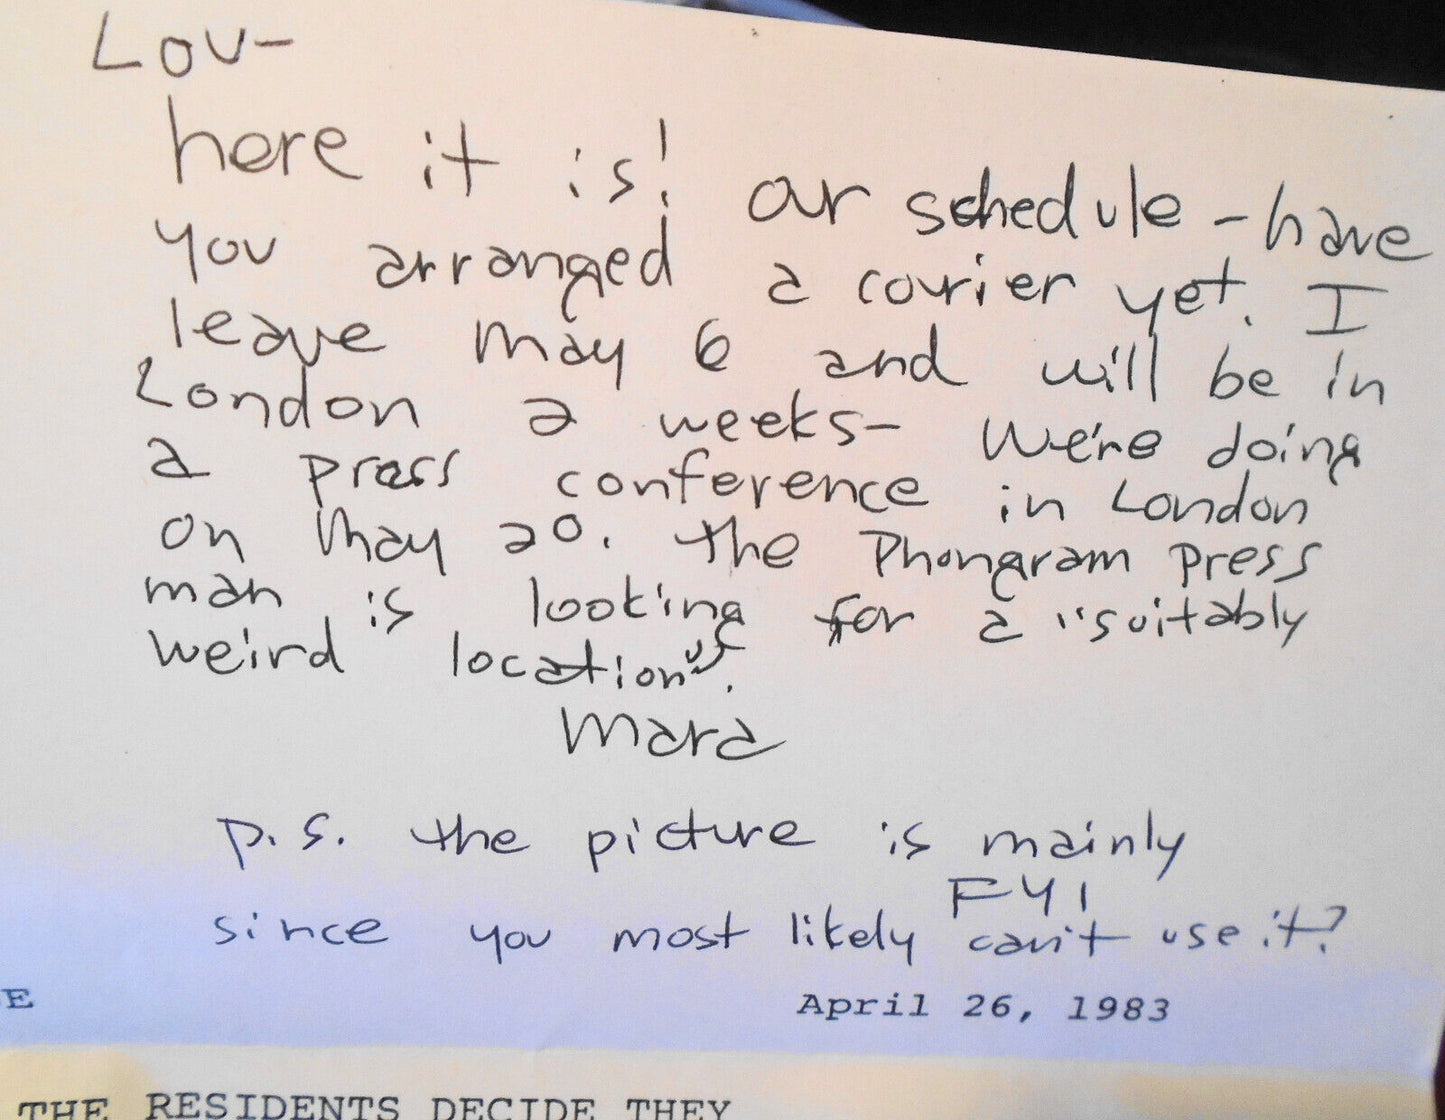 Lou-
here it is! our schedule - have
you arranged a courier yet. I
leave May 6 and will be in
London 2 weeks- We're doing
a press conference in London
on May 20. the Phongram press
man is looking for a "suitably
weird location".
Mara
p.s. the picture is mainly
FYI
since you most likely can't use it?
E
April 26, 1983
THE RESIDENTS DECIDE THEY